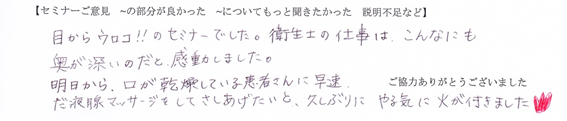 【セミナーご意見 ~の部分が良かった ~についてもっと聞きたかった 説明不足など】
目からウロコ!!のセミナーでした。衛生士の仕事は、こんなにも
奥が深いのだと感動しました。
明日から、口が乾燥している患者さんに早速、
ご協力ありがとうございました
だ液腺マッサージをしてさしあげたいと、久しぶりに やる気に火が付きました